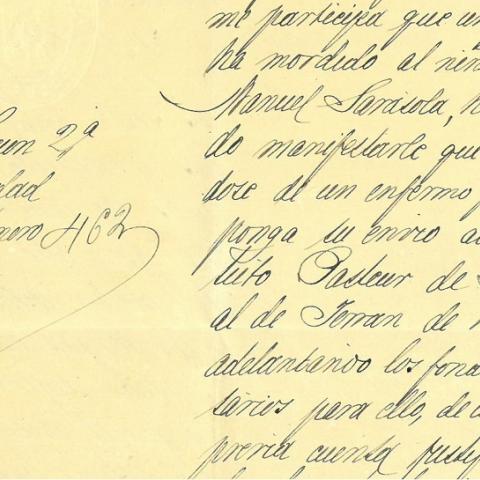 me participa que un
ha mordido al niñ
Manuel Sarasola, h
do manifestarle que
dose de un enfermo p
ponga su envio a
tuto Pasteur de
al de Ferran de
adelantando los fon
tarios para ello, de
previa cuenta justi
cion 2ª
dad
mero 462